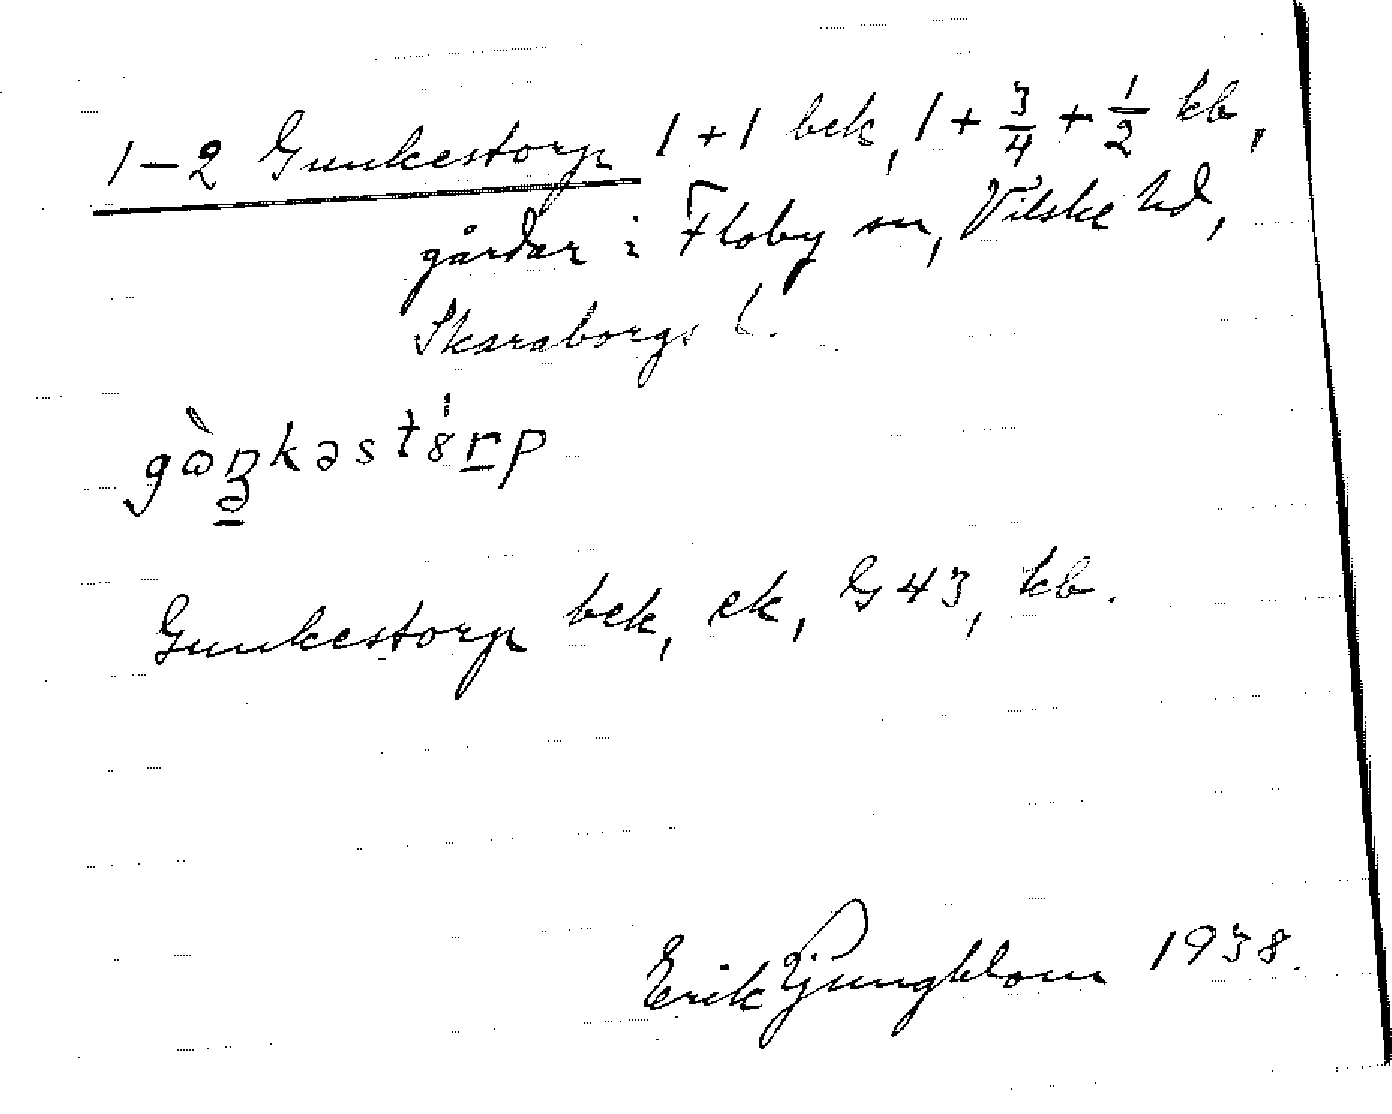 1-2 Gunkestorp 1+1 bek, 1 + 3/4 + 1/2 kb,
gårdar i Floby sn, Vilske hd,
Skaraborgs l.
Gunkestorp bek, ek, G 43, kb.
Erik Ljungblom 1938.